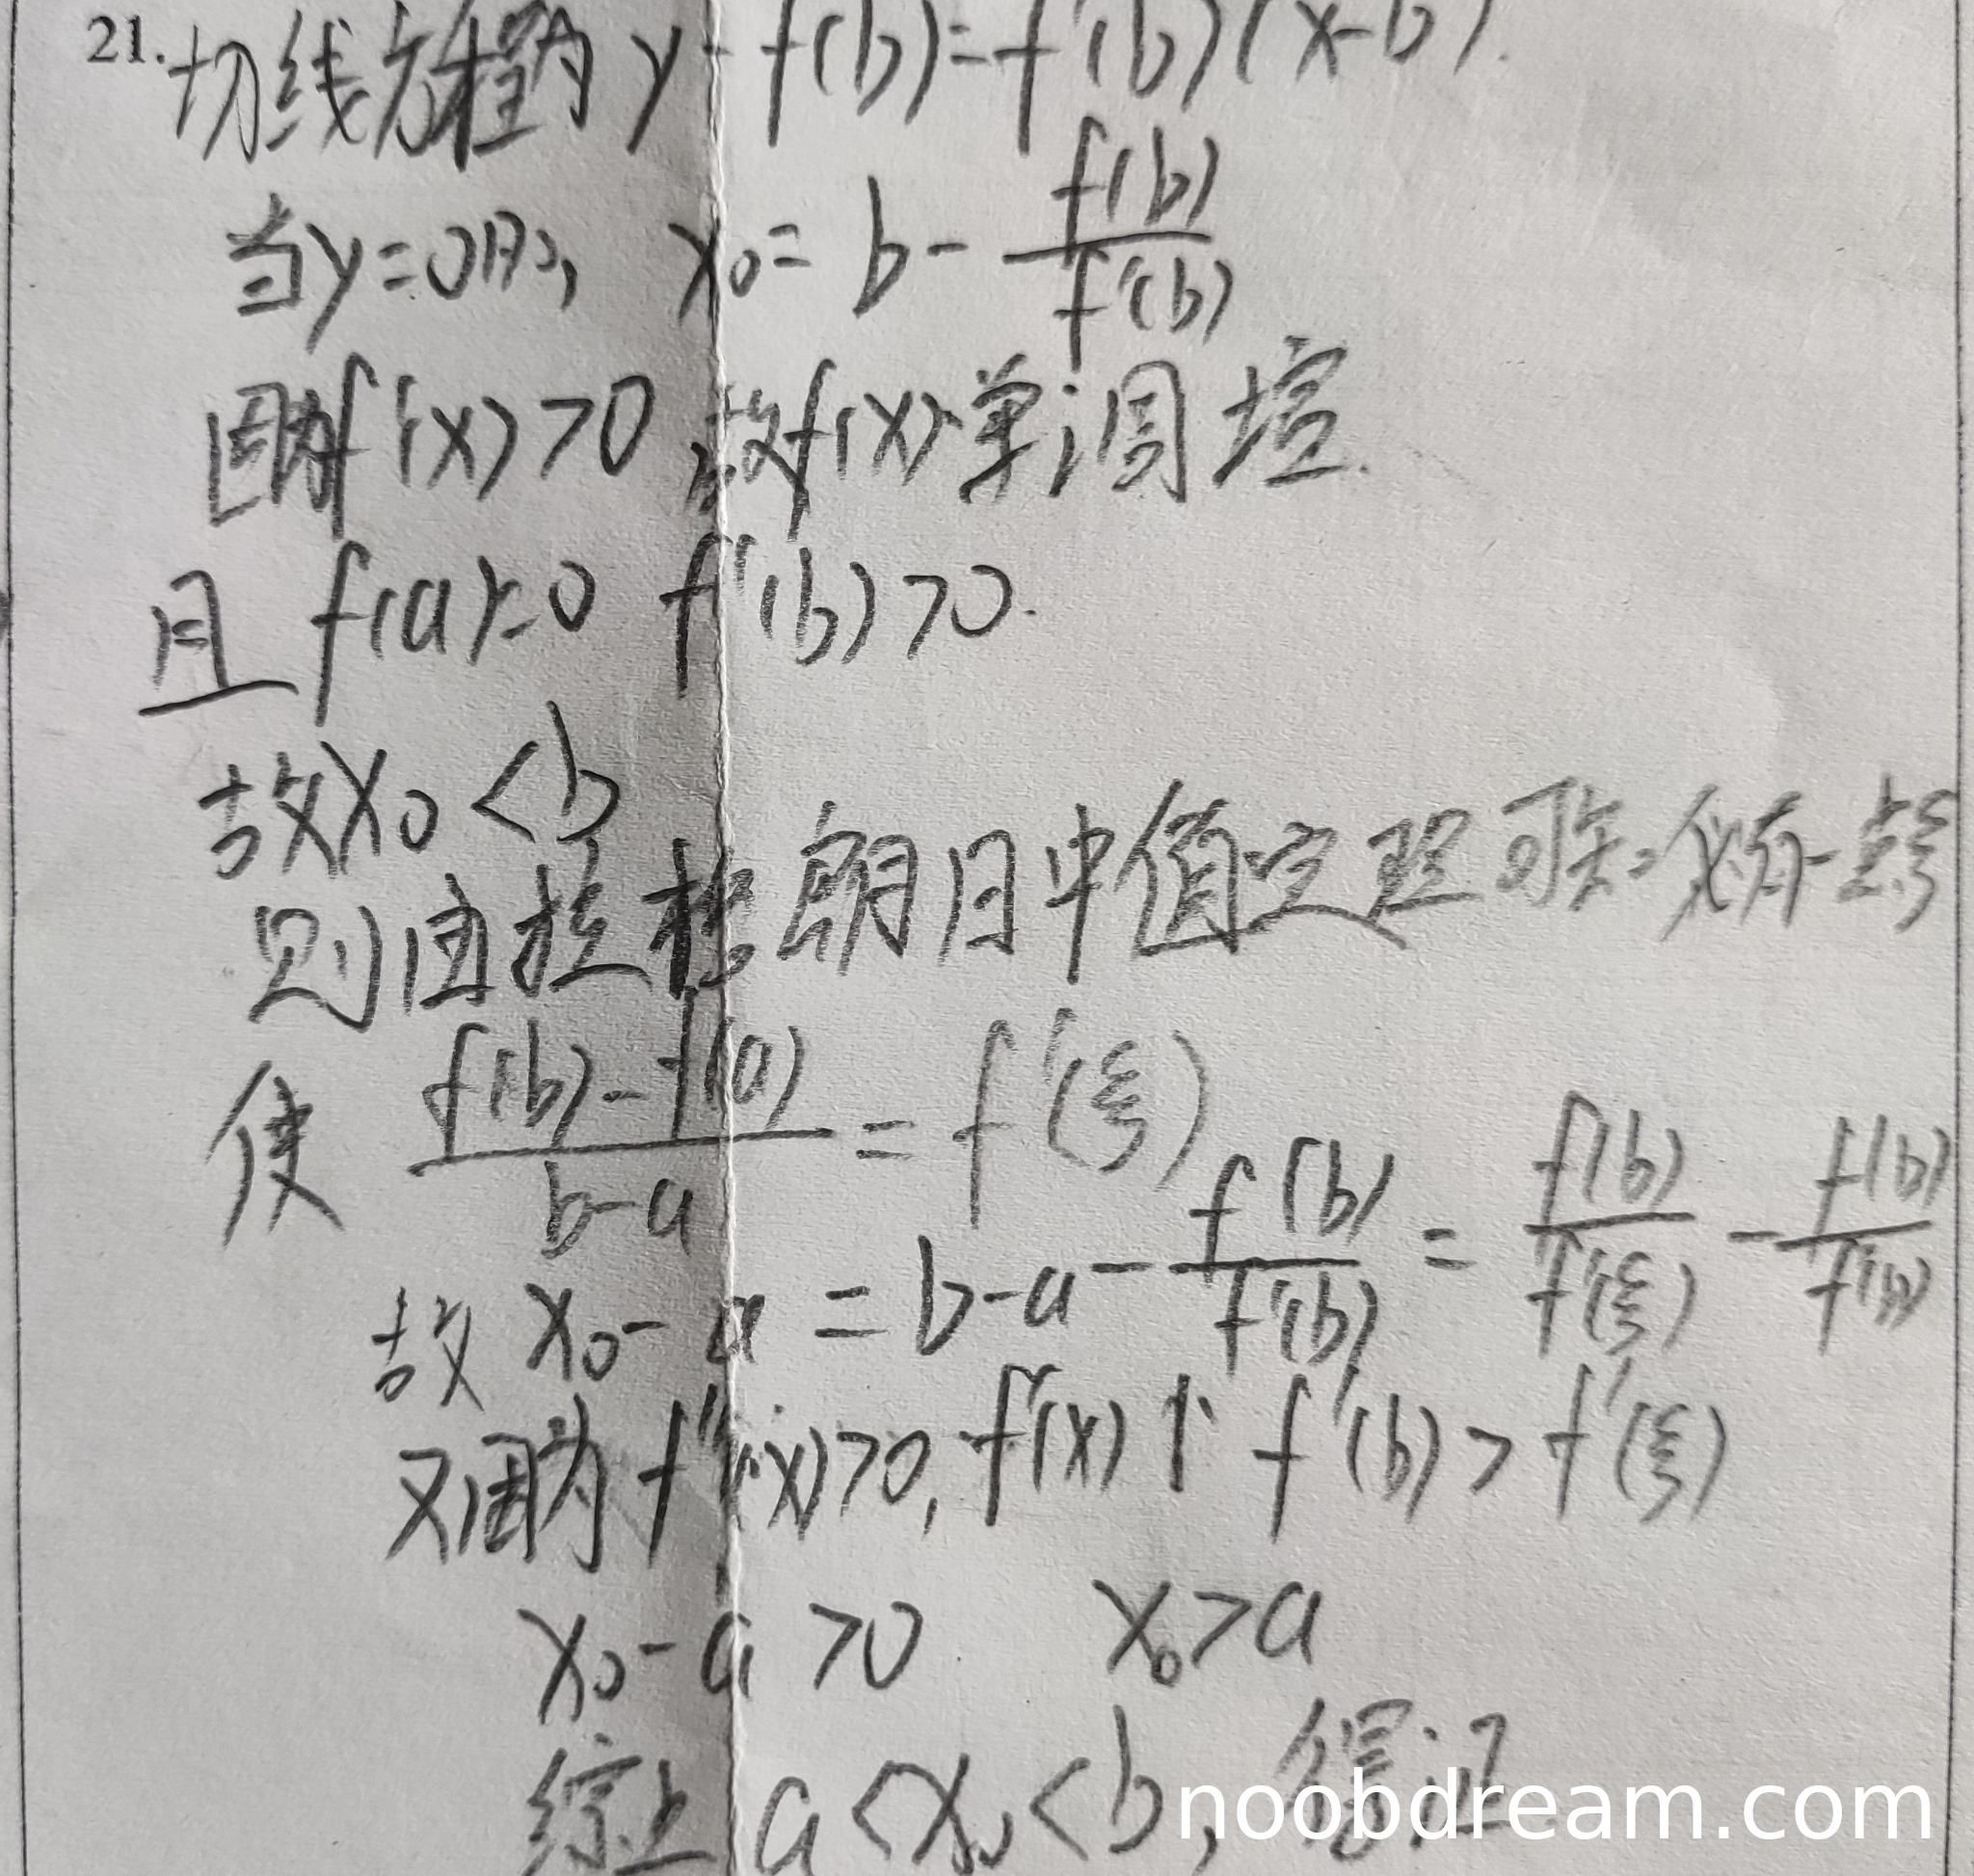 21. 切线方程为 y-f(b)=f'(b)(x-b).
当y=0时, x₀= b - f(b)/f'(b)
因为f'(x)>0 故f(x)单调增.
且 f(a)=0 f'(b)>0.
故x₀<b
则由拉格朗日中值定理可知必有一点ξ
使 (f(b)-f(a))/(b-a) = f'(ξ)
故 x₀-a = b-a-f(b)/f'(b) = f(b)/f'(ξ) - f(b)/f'(b)
又因为 f''(x)>0, f'(x)↑ f'(b)>f'(ξ)
x₀-a>0 x₀>a
综上 a<x₀<b, 得证
noobdream.com